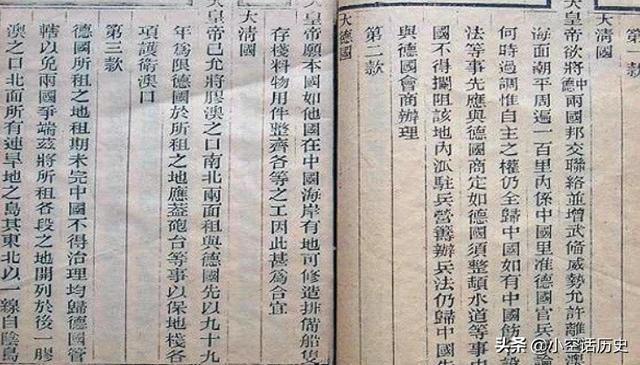 第一款
大清國
大皇帝欲將中德兩國邦交聯絡並增武備威勢允許離
海面潮平周遍一百里內係中國里准德國官兵無論
何時過調惟自主之權仍全歸中國如有中國飭
法等事先應與德國商定如德國須整頓水道等事中
國不得攔阻該地內派駐兵營籌辦兵法仍歸中國
與德國會商辦理
第二款
大德國
大皇帝願本國如他國在中國海岸有地可修造排備船隻
存棧料物用件整齊各等之工因此甚爲合宜
大清國
大皇帝已允將膠澳之口南北兩面租與德國先以九十九
年爲限德國於所租之地應蓋砲台等事以保地棧各
項護衛澳口
第三款
德國所租之地租期未完中國不得治理均歸德國管
轄以免兩國爭端茲將所租各段之地開列於後一膠
澳之口北面所有連旱地之島其東北以一線自陰島
头条 @小空话历史